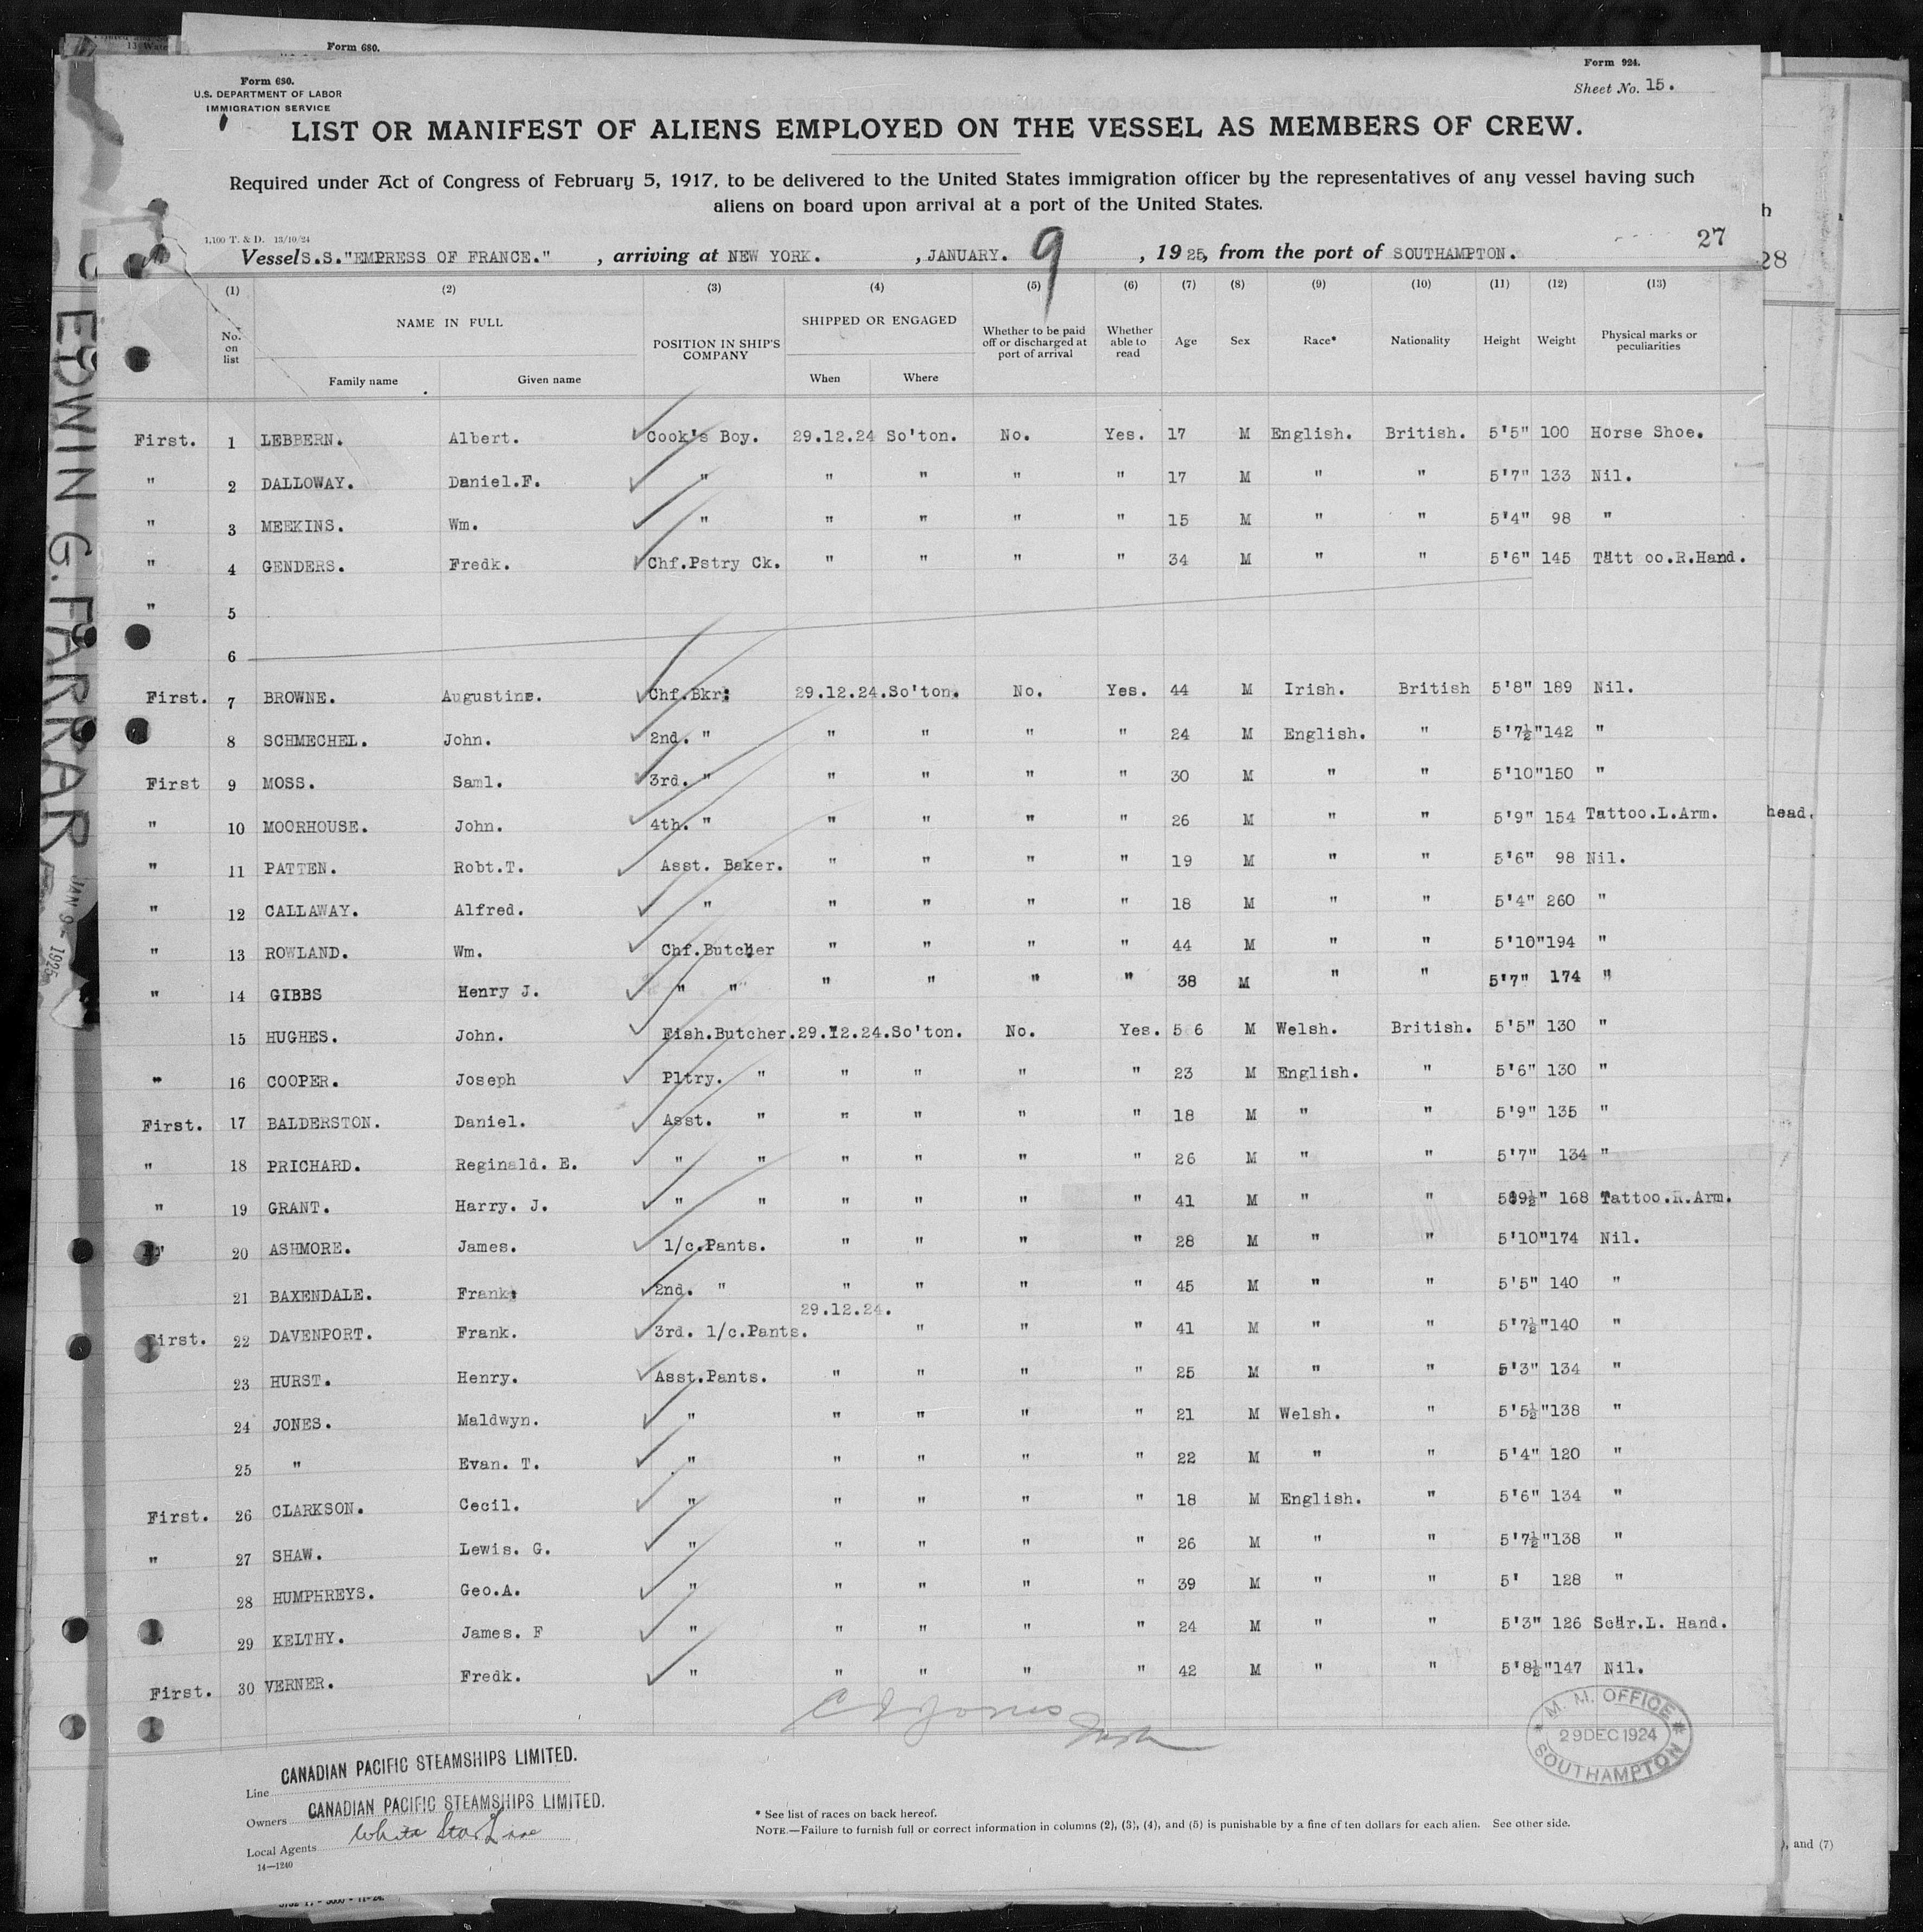 13 Wate
Form 680.
Form 680.
U.S. DEPARTMENT OF LABOR
IMMIGRATION SERVICE
Form 924.
Sheet No. 15.
LIST OR MANIFEST OF ALIENS EMPLOYED ON THE VESSEL AS MEMBERS OF CREW.
Required under Act of Congress of February 5, 1917, to be delivered to the United States immigration officer by the representatives of any vessel having such
aliens on board upon arrival at a port of the United States.
1,100 T. & D. 13/10/24
27
28
Vessel S.S."EMPRESS OF FRANCE." , arriving at NEW YORK. , JANUARY. 9 , 1925, from the port of SOUTHAMPTON.
(1) (2) (3) (4) (5) (6) (7) (8) (9) (10) (11) (12) (13)
No. on list NAME IN FULL Family name Given name POSITION IN SHIP'S COMPANY SHIPPED OR ENGAGED When Where Whether to be paid off or discharged at port of arrival Whether able to read Age Sex Race* Nationality Height Weight Physical marks or peculiarities
First. 1 LEBBERN. Albert. Cook's Boy. 29.12.24 So'ton. No. Yes. 17 M English. British. 5'5" 100 Horse Shoe.
" 2 DALLOWAY. Daniel.F. " " " " " 17 M " " 5'7" 133 Nil.
" 3 MEEKINS. Wm. " " " " " 15 M " " 5'4" 98 "
" 4 GENDERS. Fredk. Chf.Pstry Ck. " " " " 34 M " " 5'6" 145 Tatt oo.R.Hand.
" 5
6
First. 7 BROWNE. Augustine. Chf.Bkr: 29.12.24.So'ton. No. Yes. 44 M Irish. British 5'8" 189 Nil.
8 SCHMECHEL. John. 2nd. " " " " " 24 M English. " 5'7½" 142 "
First 9 MOSS. Saml. 3rd. " " " " " 30 M " " 5'10" 150 "
" 10 MOORHOUSE. John. 4th. " " " " " 26 M " " 5'9" 154 Tattoo.L.Arm.
head.
" 11 PATTEN. Robt.T. Asst. Baker. " " " " 19 M " " 5'6" 98 Nil.
" 12 CALLAWAY. Alfred. " " " " " 18 M " " 5'4" 260 "
" 13 ROWLAND. Wm. Chf.Butcher " " " " 44 M " " 5'10" 194 "
" 14 GIBBS Henry J. " " " " " " 38 M " " 5'7" 174 "
15 HUGHES. John. Fish.Butcher. 29.12.24.So'ton. No. Yes. 56 M Welsh. British. 5'5" 130 "
" 16 COOPER. Joseph Pltry. " " " " " 23 M English. " 5'6" 130 "
First. 17 BALDERSTON. Daniel. Asst. " " " " " 18 M " " 5'9" 135 "
" 18 PRICHARD. Reginald. E. " " " " " " 26 M " " 5'7" 134 "
" 19 GRANT. Harry. J. " " " " " " 41 M " " 5'9½" 168 Tattoo.R.Arm.
" 20 ASHMORE. James. 1/c.Pants. " " " " 28 M " " 5'10" 174 Nil.
21 BAXENDALE. Frank. 2nd. " " " " " 45 M " " 5'5" 140 "
First. 22 DAVENPORT. Frank. 3rd. 1/c.Pants. 29.12.24. " " " 41 M " " 5'7½" 140 "
23 HURST. Henry. Asst.Pants. " " " " 25 M " " 5'3" 134 "
24 JONES. Maldwyn. " " " " " 21 M Welsh. " 5'5½" 138 "
25 " Evan. T. " " " " " 22 M " " 5'4" 120 "
First. 26 CLARKSON. Cecil. " " " " " 18 M English. " 5'6" 134 "
" 27 SHAW. Lewis. G. " " " " " 26 M " " 5'7½" 138 "
28 HUMPHREYS. Geo.A. " " " " " 39 M " " 5' 128 "
29 KELTHY. James. F " " " " " 24 M " " 5'3" 126 Scar.L. Hand.
First. 30 VERNER. Fredk. " " " " " 42 M " " 5'8½" 147 Nil.
M. M. OFFICE
29 DEC 1924
SOUTHAMPTON
Line CANADIAN PACIFIC STEAMSHIPS LIMITED.
Owners CANADIAN PACIFIC STEAMSHIPS LIMITED.
Local Agents White Star Line
14—1240
* See list of races on back hereof.
NOTE.—Failure to furnish full or correct information in columns (2), (3), (4), and (5) is punishable by a fine of ten dollars for each alien. See other side.
, and (7)
EDWIN G. FARRAR
JAN 9 - 1925